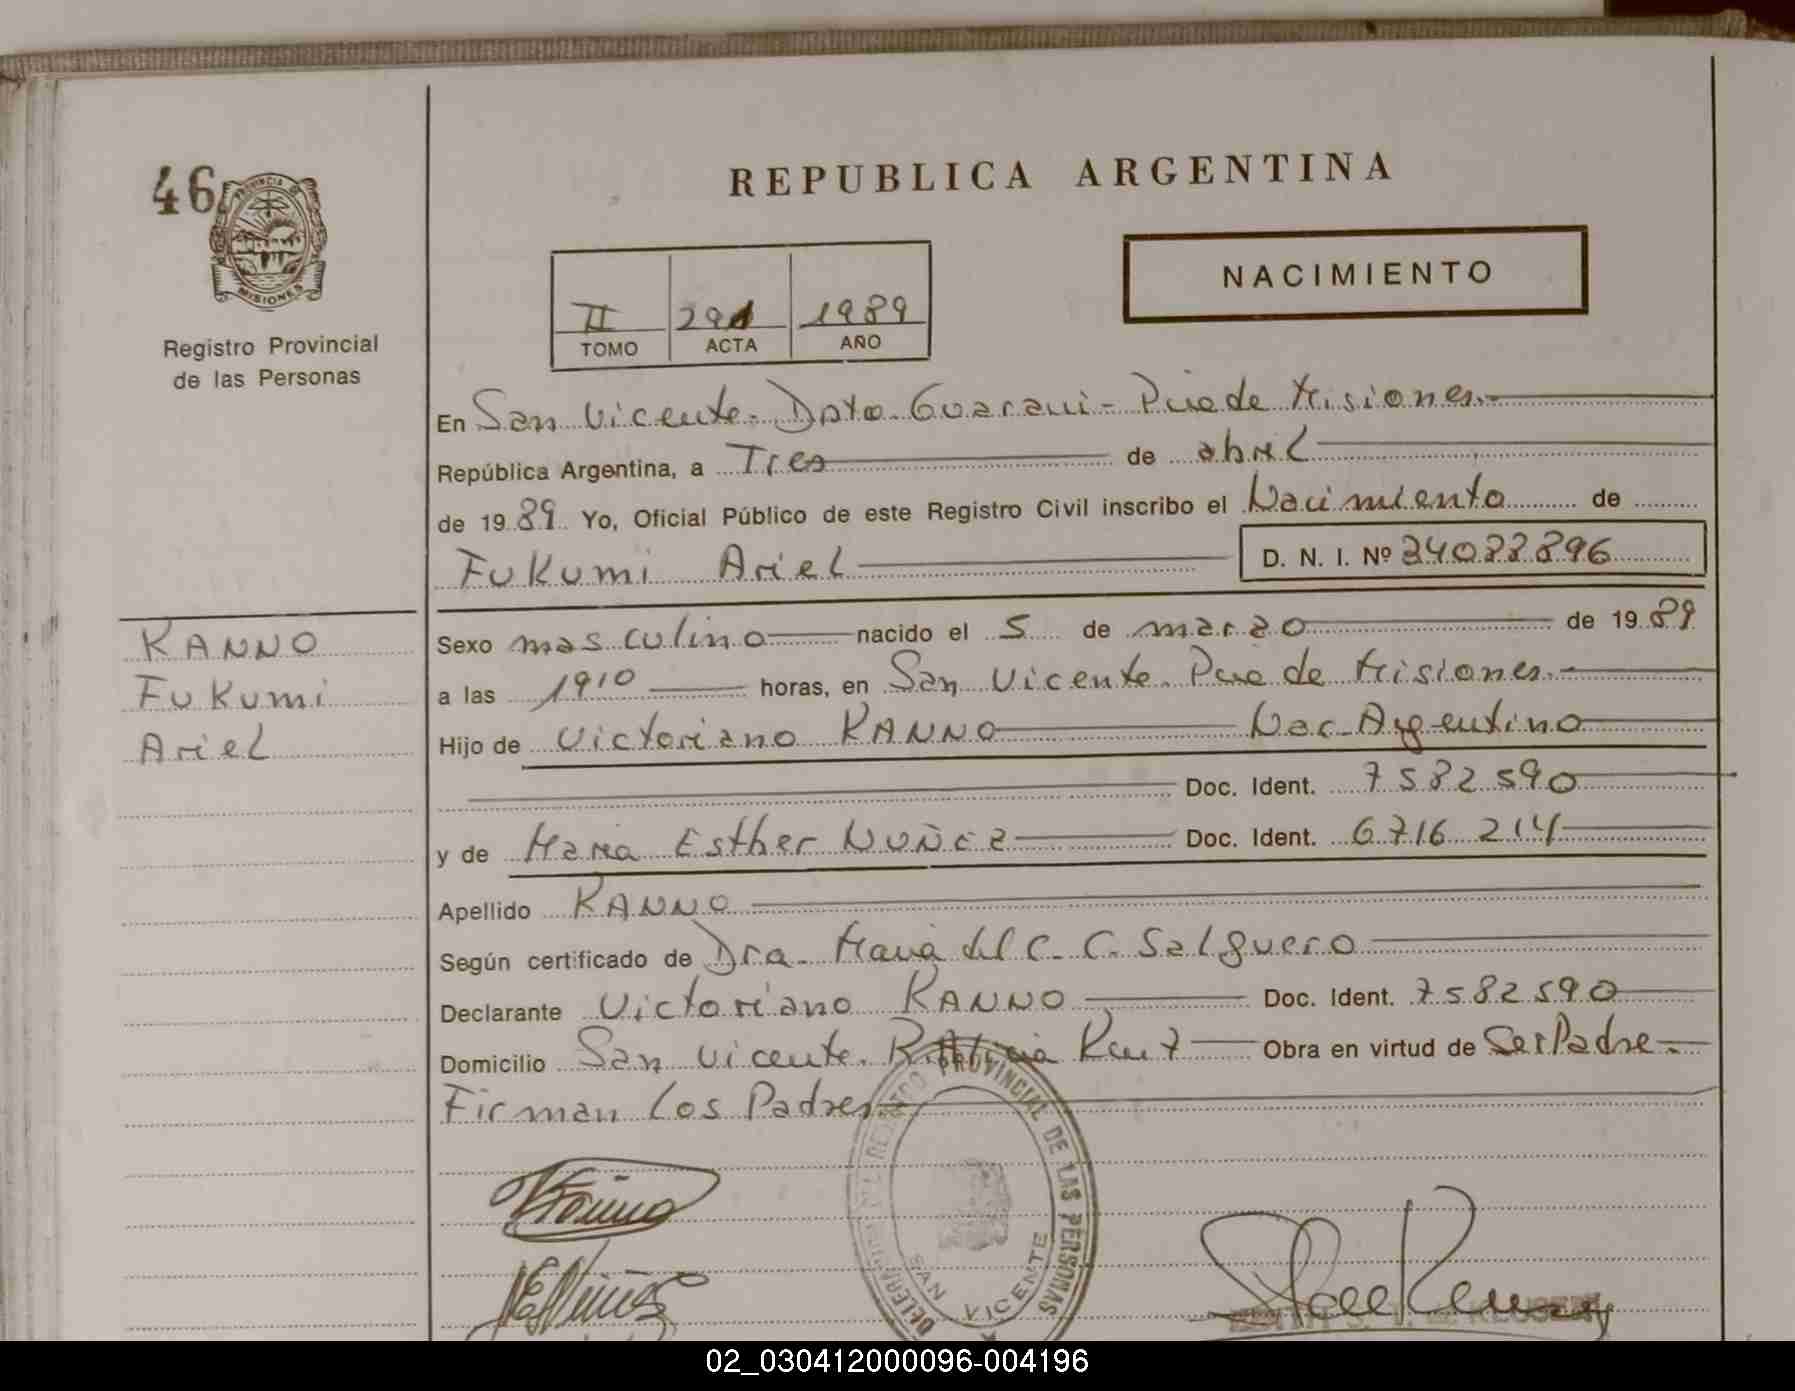 46
PROVINCIA DE
MISIONES
Registro Provincial
de las Personas
REPUBLICA ARGENTINA
NACIMIENTO
II 291 1989
TOMO ACTA AÑO
En San Vicente. Dpto. Guarani - Pcia de Misiones.-
República Argentina, a Tres de abril
de 1989 Yo, Oficial Público de este Registro Civil inscribo el Nacimiento de
Fukumi Ariel D. N. I. Nº 34088896
KANNO
Fukumi
Ariel
Sexo masculino nacido el 5 de marzo de 1989
a las 1910 horas, en San Vicente. Pcia de Misiones.-
Hijo de Victoriano KANNO Nac. Argentino
Doc. Ident. 7582590
y de Maria Esther NUÑEZ Doc. Ident. 6716214
Apellido KANNO
Según certificado de Dra. Maria del C. C. Salguero
Declarante Victoriano KANNO Doc. Ident. 7582590
Domicilio San Vicente. Obra en virtud de Ser Padre.-
Firman Los Padres.-
REGISTRO PROVINCIAL DE LAS PERSONAS
SAN VICENTE
02_030412000096-004196